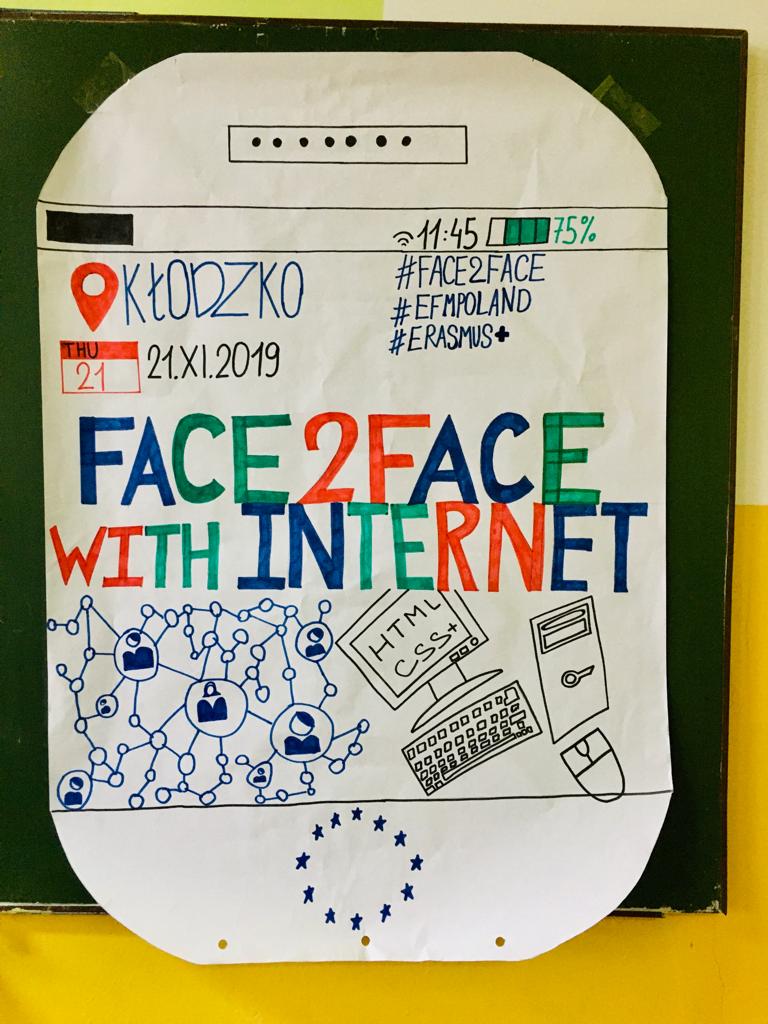 11:45 75%
KŁODZKO
#FACE2FACE
#EFMPOLAND
#ERASMUS+
THU
21
21.XI.2019
FACE2FACE
WITH INTERNET
HTML
CSS+